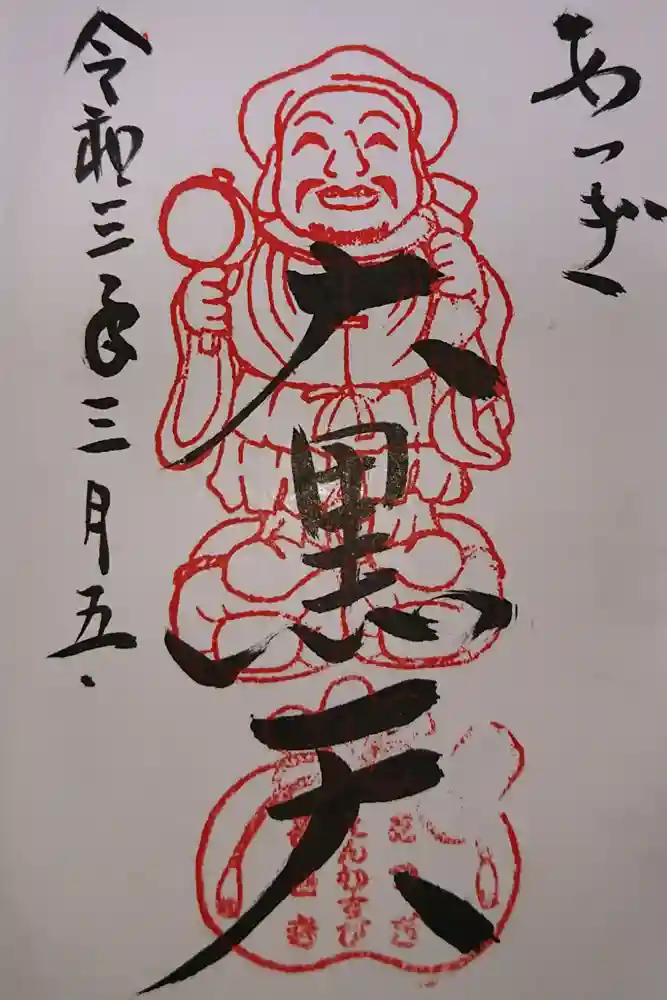 あつぎ
大黒天
令和三年三月五.
えんむすび